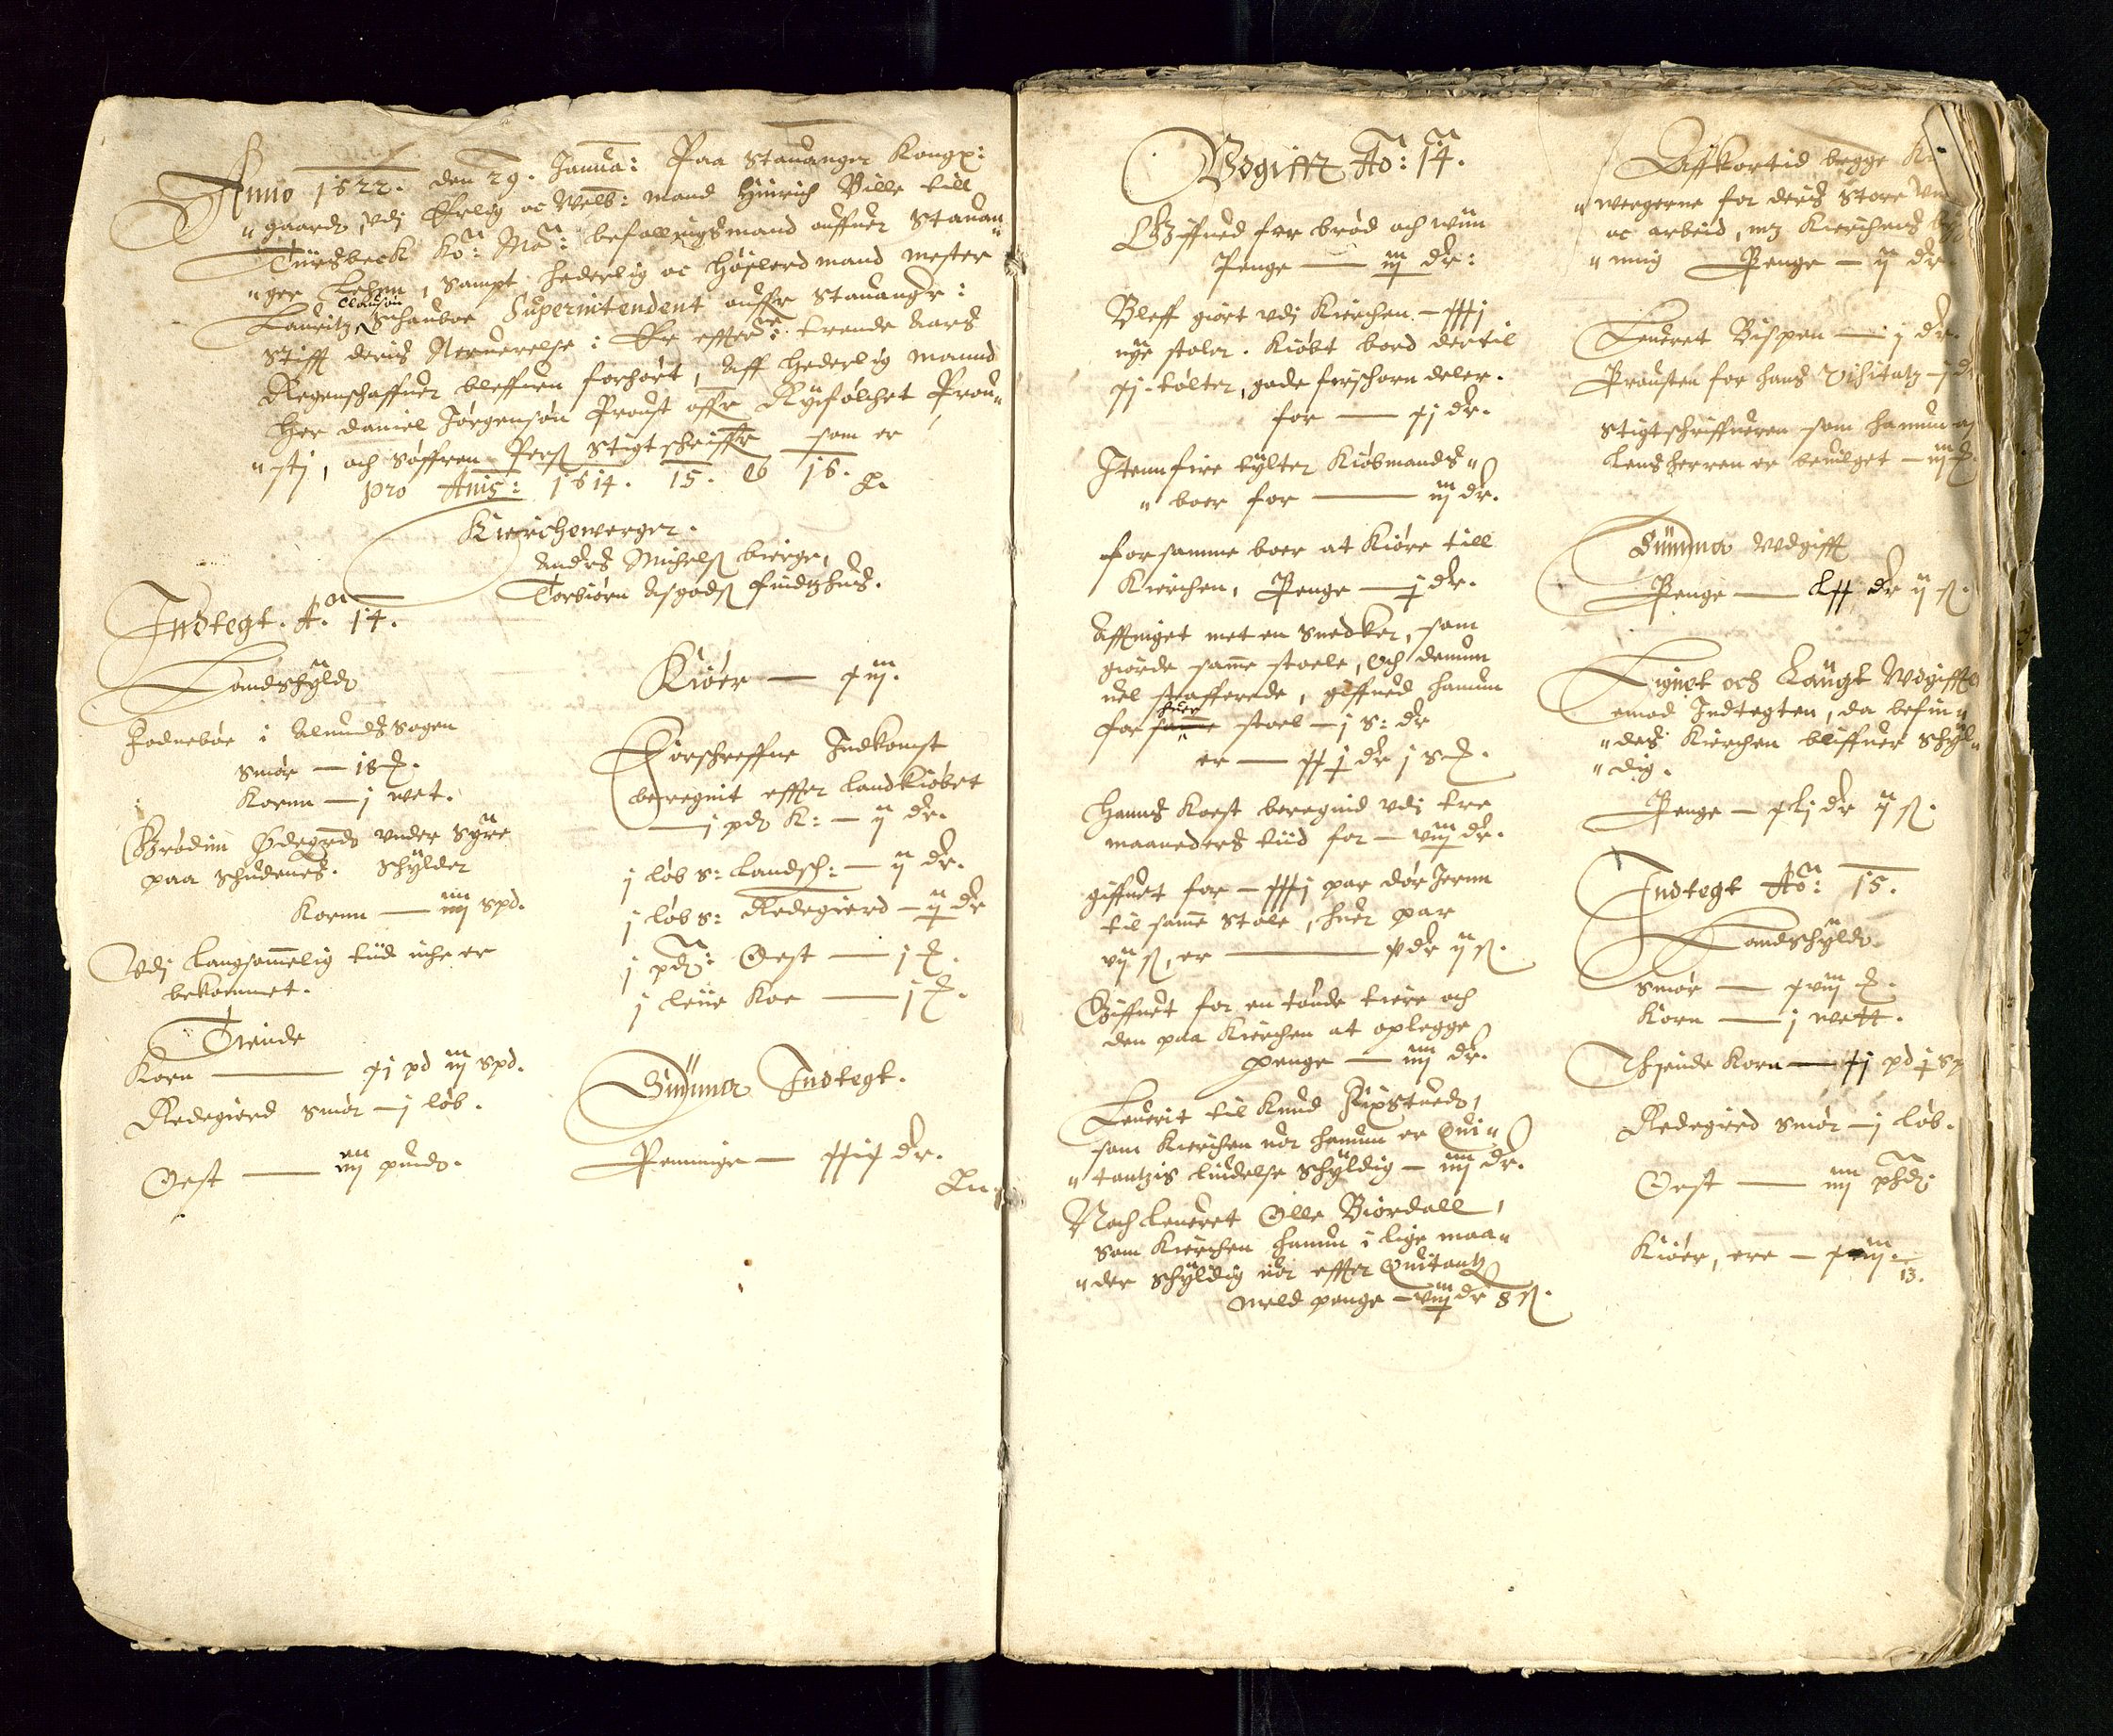 Anno 1622. den 29. Janua: Paa Stauanger Kongx:
"gaard, vdj Erlig oc Welb: mand Hinrich Bille till
Tiirsbeck Ko: Ma: befallingsmand offuer Stauan"
"ger Lehen, sampt hederlig oc Høylerd mand mester
Lauritz Clausøn Schauboe Superintendent offr Stauangr:
Stifft deris Neruerelse: Er effter: trende Aars
Regenschaffuer bleffuen forhørt, Aff hederlig mannd
Her Daniel Jørgensøn Proust offr Ryefølchet Prou"
"stj, och Søffren Perß Stigtschriffr som er
pro Anis: 1614. 15. & 16.
Kierchewerger.
Anders Michelß bierge,
Torbiørn Asgodß
Indtegt. A. 14.
Landschyld
Fodnebøe i Aluuds Sogen
Smør — 18
Kornn — j wet.
Grødim Ødegrd vnder Sygre
paa Schudenes. Schylder
Kornn — iiij spd.
Vdj langsommelig tiid iche er
bekommet.
Tiende
Korn — xj pd iij spd.
Redegierd Smør — j løb.
Oest — iiij pund.
Kiøer — xiij.
Forschreffne Indkomst
beregnit effter landkiøbet
j pd K: — ij dr.
j løb S: Landsch: — ij dr.
j løb S: Redegierd — ij dr
j pd: Oest — j
j leiie Koe — j
Summa Indtegt.
Penninge — dr.
Vdgifft Ao: 14.
Giffued for brød och wiin
Penge — iij dr:
Bleff giort vdj Kierchen — xxxj
nye stoler. Kiøbt bord dertil
xj tølter, gode ferschorn deler.
for — xj dr.
Item fire tylter Kiøbmands"
"boer for — iij dr.
for samme boer at Kiøre till
Kierchen, Penge — j dr.
Affinget met en Snedker, som
giorde samme stoele, och dennum
vel stafferede, giffued hannum
for huer stoel — j S: dr
er — dr j
Hanns Kost beregnid vdj tre
maaneders tiid for — viij dr.
giffuet for — xxxj par dør Jernn
til same Stole, huer par
vij ß, er — dr ij ß.
Giffuet for en tønde tiere och
den paa Kirchen at oplegge
penge — iiij dr.
Leuerit til Knud
som Kierchen vor hannum er Qui"
"tantzis liudelse Schyldig — iiij dr.
Noch leueret Olle Biordall,
som Kierchen hannum i lige maa"
"der Schyldig vor effter Quitantz
meld penge — viij dr 8 ß.
Affkortid begge
"wergerne for deris store
oc arbeid, mz Kierchens
"ning Penge — ij dr.
Leueret Bispen — j dr.
Prousten for hans Visitatz — j
Stigtschriffueren som hannum
Lensherren er beuilget — iij
Summa Vdgifft
Penge — Lxx dr ij ß.
Lignet och Laugt Vdgifften
emod Indtegten, da befin"
"des Kirchen bliffuer Schyl"
"dig.
Penge — xLj dr ij ß.
Indtegt Ao: 15.
Landschyld
Smør — xviij
Korn — j wett.
Thiende Korn — xj pd
Redegierd Smør — j løb.
Oest — iiij phd.
Kiøer, ere — xiij.
13.